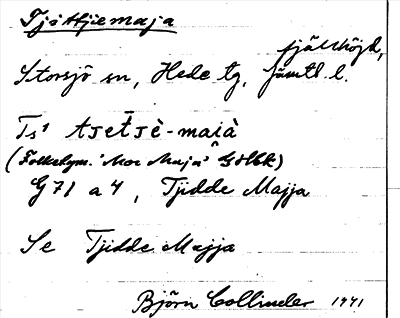 Tjåttjiemaja
fjällhöjd,
Storsjö sn, Hede tg, Jämtl. l.
Ts¹ tsĕtsè-maià
(Folketym. "Mor Maja"
G 71 a 4, Tjidde Majja
Se Tjidde Majja
Björn Collinder 1941